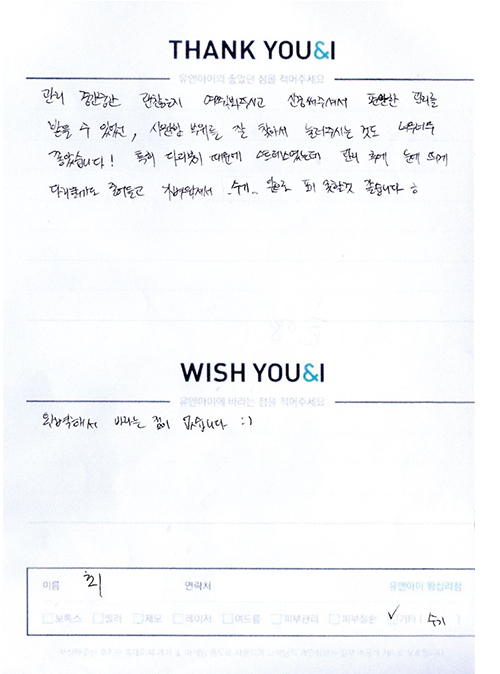 THANK YOU&I
유앤아이의 좋았던 점을 적어주세요
관리 중간중간 괜찮은지 여쭤봐주시고 신경써주셔서 편안한 관리를
받을 수 있었고, 시원한 부위를 잘 찾아서 눌러주시는 것도 너무너무
좋았습니다! 특히 다리붓기 때문에 스트레스였는데 관리 후에 눈에 띄게
다리붓기도 줄어들고
WISH YOU&I
유앤아이에 바라는 점을 적어주세요
완벽해서 바라는 점이 없습니다 :)
이름 최 연락처 유앤아이 왕십리점
보톡스 필러 제모 레이저 여드름 피부관리 피부질환 ✓기타 ( 수기 )